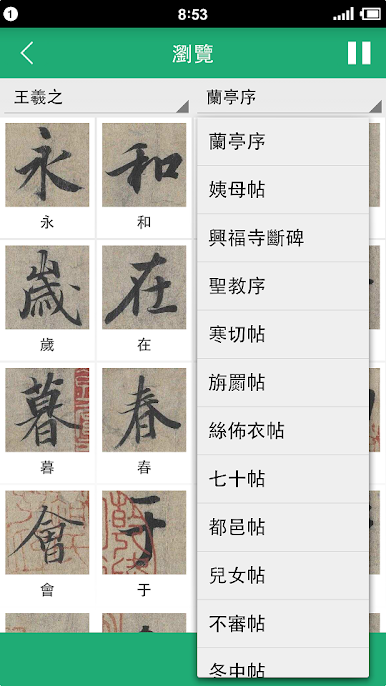 1
8:53
瀏覽
王羲之
蘭亭序
永
和
永
和
蘭亭序
姨母帖
興福寺斷碑
聖教序
寒切帖
旃罽帖
絲佈衣帖
七十帖
都邑帖
兒女帖
不審帖
冬中帖
歲
在
歲
在
暮
春
暮
春
會
于
會
于